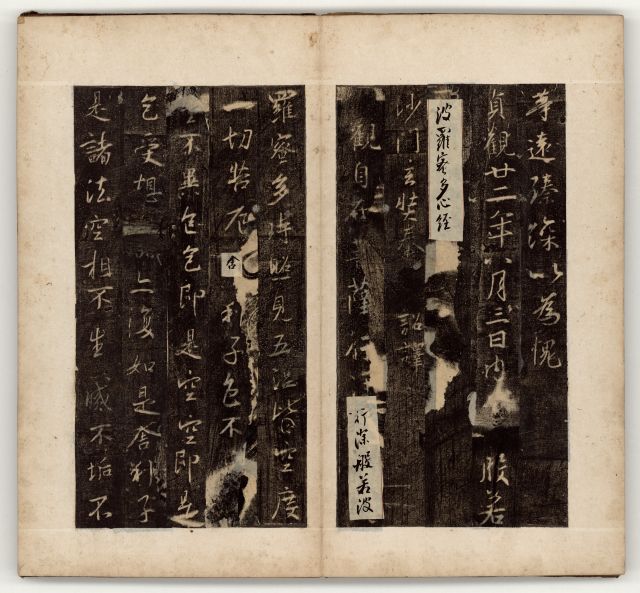 等遠臻深以為愧
貞觀廿二年八月三日內 般若
波羅蜜多心經
沙門玄奘奉 詔譯
觀自在菩薩行深般若波
羅蜜多時照見五蘊皆空度
一切苦厄舍利子色不
不異色色即是空空即是
色受想 亦復如是舍利子
是諸法空相不生滅不垢不